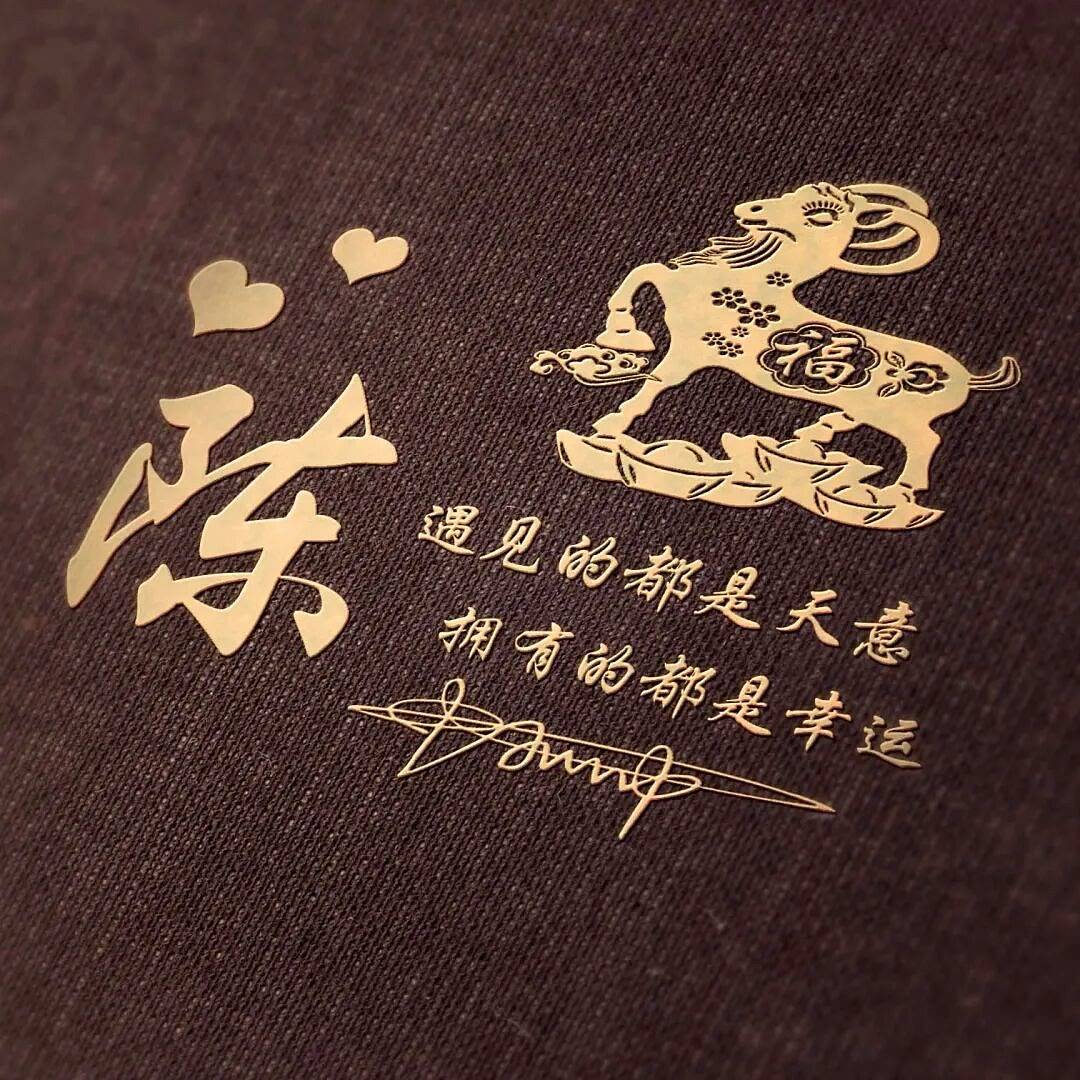 陈
福
遇见的都是天意
拥有的都是幸运